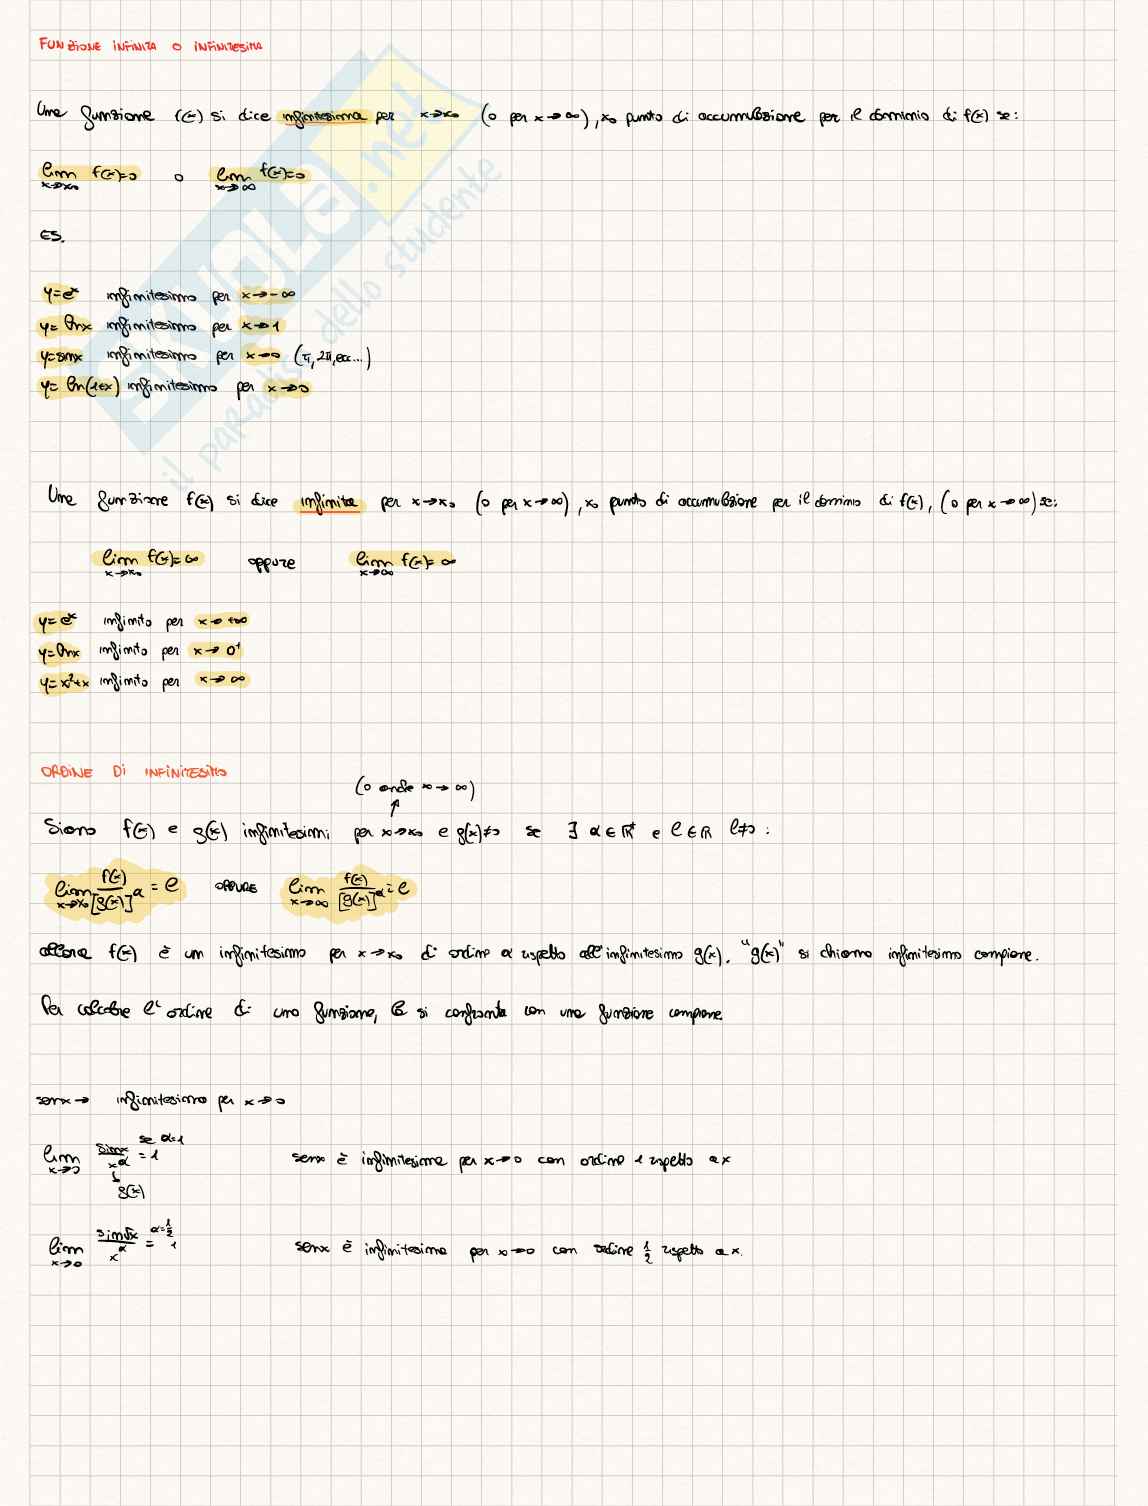 FUNZIONE INFINITA O INFINITESIMA
Una funzione f(x) si dice infinitesima per x→x₀ (o per x→∞), x₀ punto di accumulazione per il dominio di f(x) se:
lim x→x₀ f(x)=0 o lim x→∞ f(x)=0
ES.
y=eˣ infinitesimo per x→-∞
y=lnx infinitesimo per x→1
y=sinx infinitesimo per x→0 (π, 2π, ecc...)
y=ln(1+x) infinitesimo per x→0
Una funzione f(x) si dice infinita per x→x₀ (o per x→∞), x₀ punto di accumulazione per il dominio di f(x), (o per x→∞) se:
lim x→x₀ f(x)=∞ oppure lim x→∞ f(x)=∞
y=eˣ infinito per x→+∞
y=lnx infinito per x→0⁺
y=x²+x infinito per x→∞
ORDINE DI INFINITESIMO
(o anche x→∞)
Siano f(x) e g(x) infinitesimi per x→x₀ e g(x)≠0 se ∃ α∈ℝ⁺ e l∈ℝ l≠0:
lim x→x₀ f(x)/[g(x)]^α = l OPPURE lim x→∞ f(x)/[g(x)]^α = l
allora f(x) è un infinitesimo per x→x₀ di ordine α rispetto all'infinitesimo g(x). "g(x)" si chiama infinitesimo campione.
Per calcolare l'ordine di una funzione, la si confronta con una funzione campione.
senx→ infinitesimo per x→0
lim x→0 sinx/x^α = 1 se α=1 senx è infinitesima per x→0 con ordine 1 rispetto a x
g(x)
lim x→0 sin√x/x^α = 1 α=1/2 senx è infinitesima per x→0 con ordine 1/2 rispetto a x.
SKUOLA.net
il paradiso dello studente